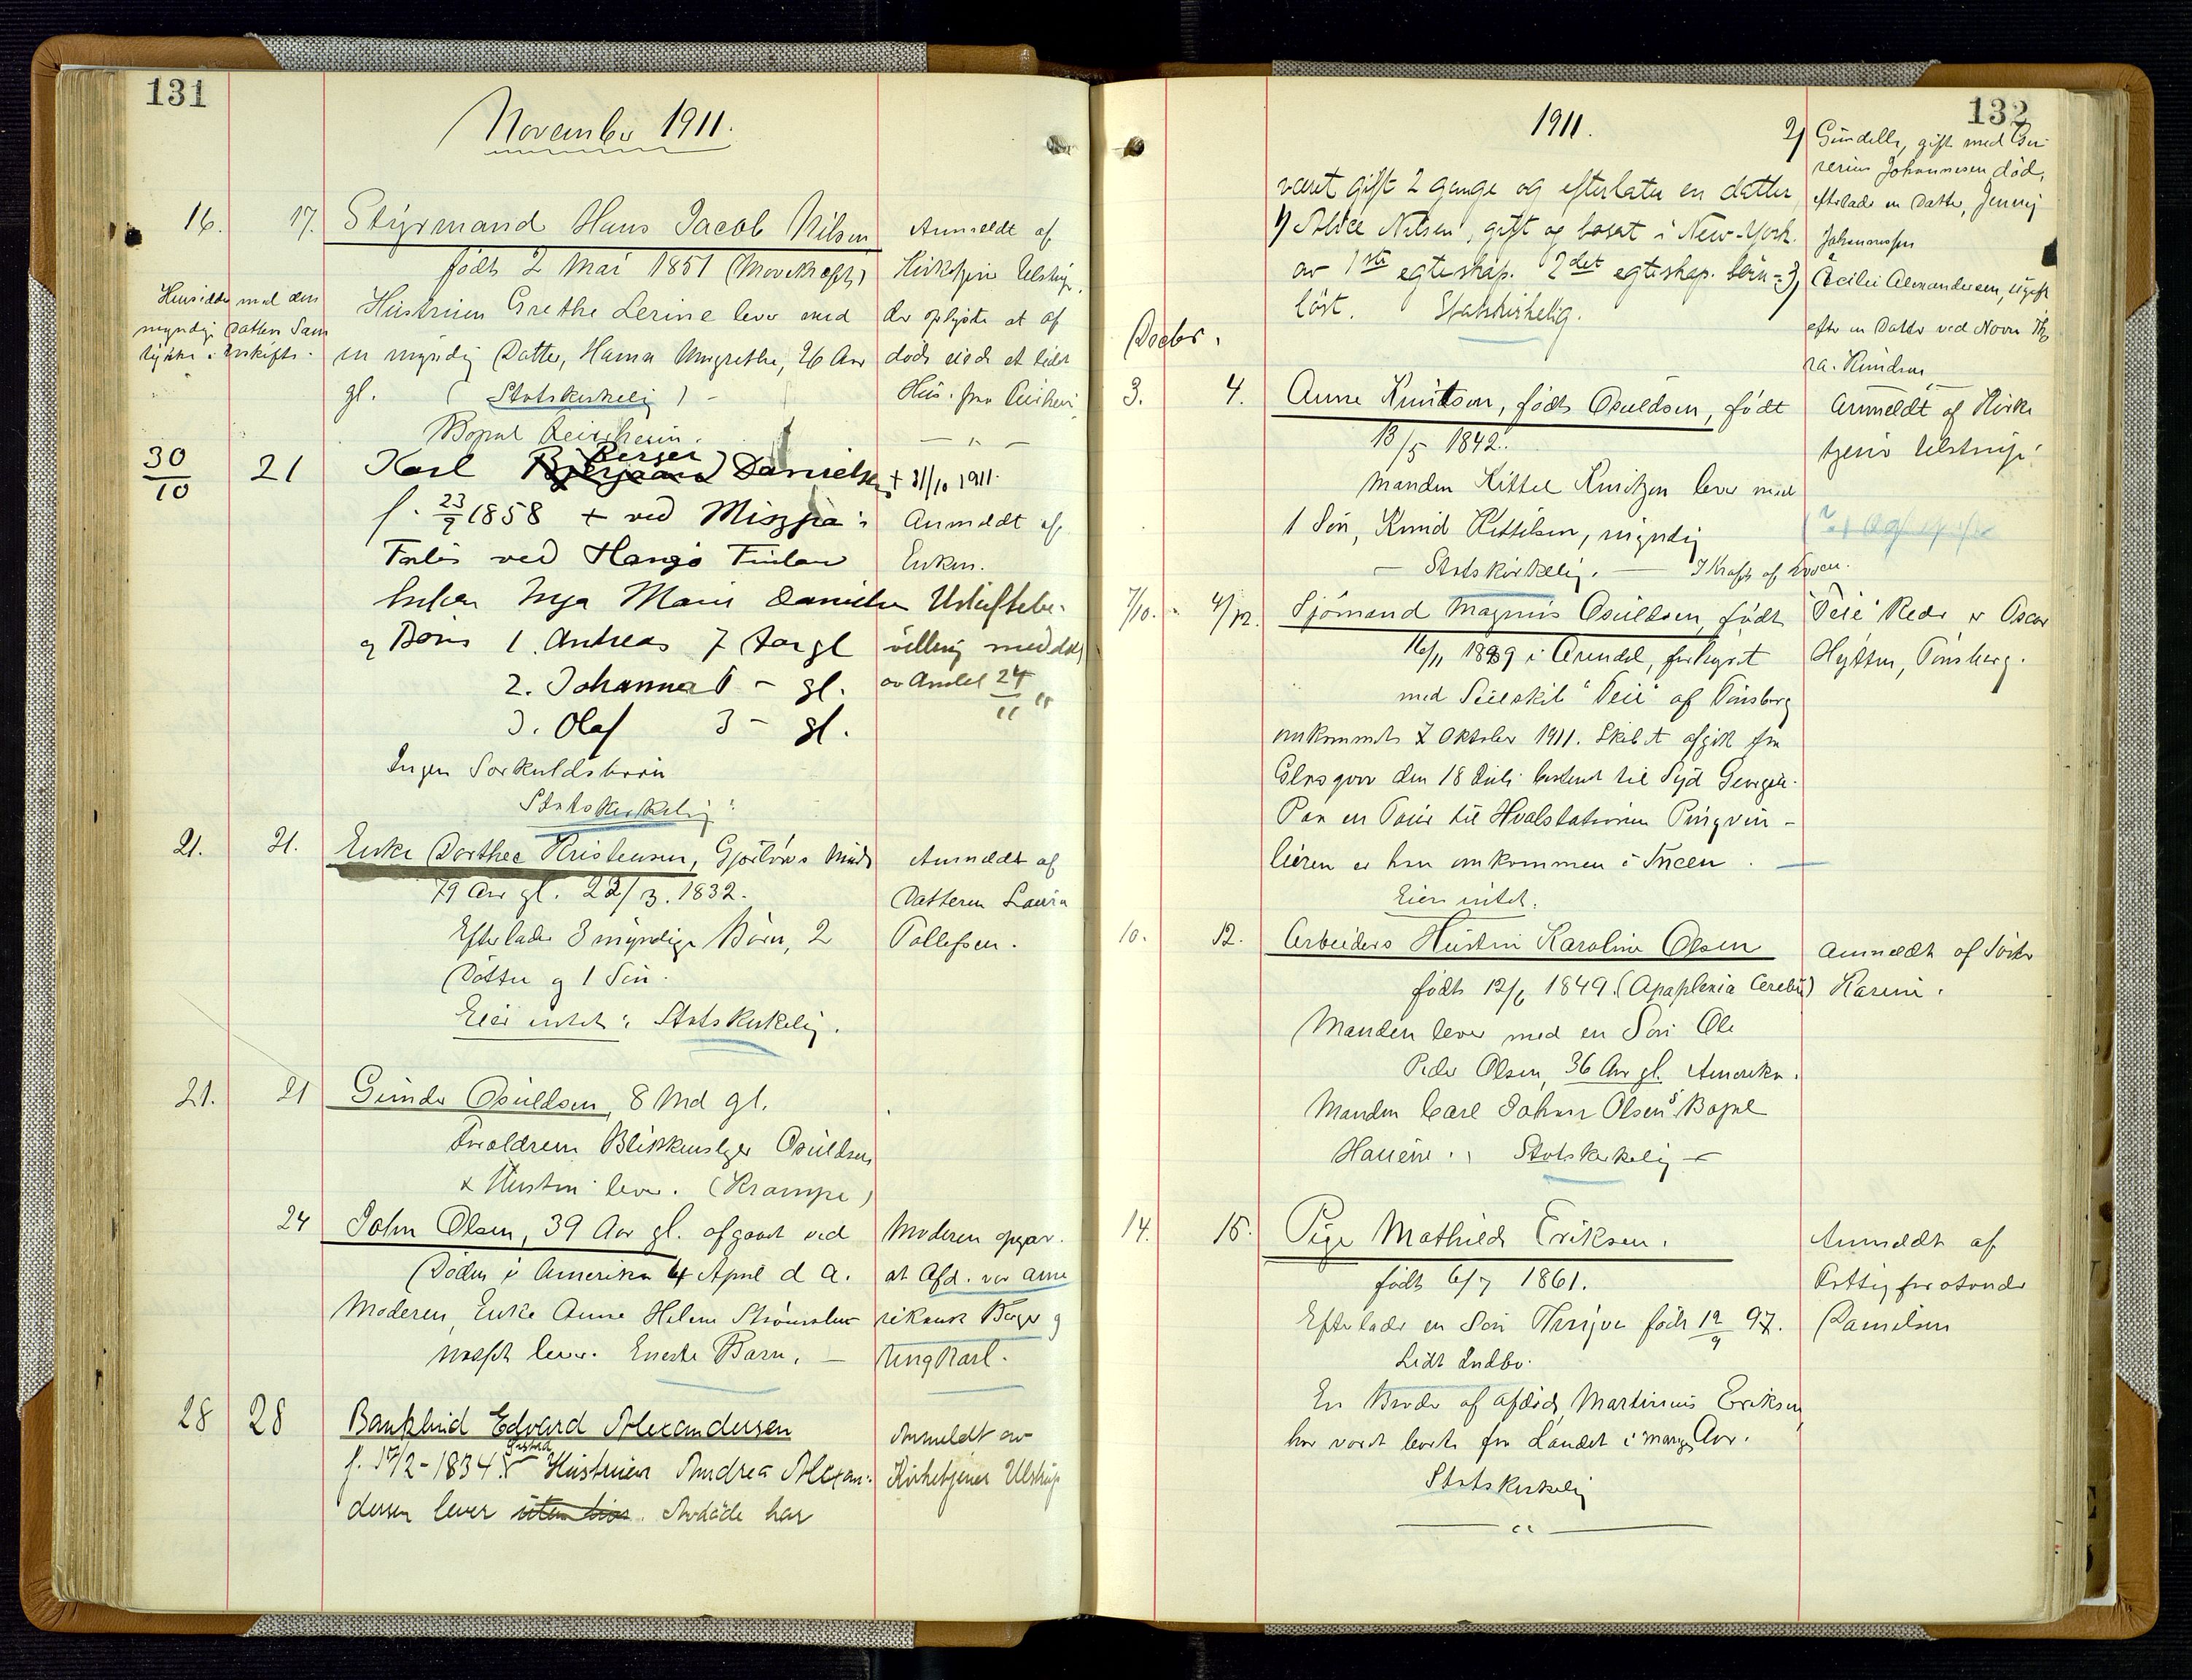 131
November 1911.
16. 17. Styrmand Hans Jacob Nilsen
født 2 Mai 1851
Hustruen Grethe Lerine lever med
en myndig Datter, Hanna Margrethe, 26 Aar
gl. (Statskirkelig) -
Bopæl
Hensidder med den
myndige Datters Sam
tykke i Uskifte.
Anmeldt af
Kirketjener Ulstrup,
der oplyste at af
døde eiede et lidet
Hus.
30/10 21 Karl Berger Danielsen
f. 23/9 1858 + ved
Forlis ved Hangø Finland
Enken Inga Marie Danielsen
og Børn 1. Andreas 7 Aar gl
2. Johanna 6 - gl.
3. Olaf 3 - gl.
Ingen Særkuldsbørn
Statskirkelig
+ 31/10 1911.
Anmeldt af
Enken.
Uskiftebe-
villing meddelt
av Amtet 24/11 "
21. 21. Enke Dorthea Kristensen,
79 Aar gl. 22/3. 1832.
Efterlader 3 myndige Børn, 2
Døttre og 1 Søn.
Eier intet: Statskirkelig.
Anmeldt af
Datteren Laura
Tollefsen.
21. 21 Gunder Osuldsen, 8 Md gl.
Forældrene Blikkenslager Osuldsen
& Hustru lever. (Krampe)
24 John Olsen, 39 Aar gl. afgaaet ved
Døden i Amerika 4 April d A.
Moderen, Enke Anne Helene
lever. Eneste Barn. -
Moderen opgav.
at Afd. var ame
rikansk Borger og
Ungkarl.
28 28 Bankbud Edvard Alexandersen
f. 17/2-1834. Hustruen Andrea Alexan-
dersen lever uten bios. Avdøde har
Anmeldt av
Kirketjener Ulstrup
132
1911.
været gift 2 gange og efterlater en datter
1) Alice Nilsen, gift og bosat i New-York.
av 1ste egteskap. 2det egteskap. børn = 3,
løst. Statskirkelig.
2) Gundelle, gift med
Johannesen død,
efterlader en Datter, Jenny
Johannessen
Cecilie Alexandersen, ugift
efter en Datter ved Navn
ra. Knudsen
Decbr.
3. 4. Anne Knudsen, født Osuldsen, født
13/5 1842.
Manden Kittel Knudsen lever med
1 Søn, Knud Kittelsen, myndig
- Statskirkelig. -
Anmeldt af Kirke
tjener Ulstrup.
7/10. 4/12. Sjømand Magnus Osuldsen, født
16/11 1889 i Arendal, forhyret
med Seilskib "Teie" af Tønsberg
omkommet 7 Oktober 1911. Skibet afgik fra
Glasgow den 18 Juli bestemt til Syd Georgia.
Paa en Tour til Hvalstationen Pingvin-
leiren er han omkommen i Sneen. -
Eier intet.
"Teie" Reder er Oscar
Hytten, Tønsberg.
10. 12. Arbeiders Hustru Karoline Olsen
født 12/6 1849. (Apoplexia Cerebri)
Manden lever med en Søn Ole
Peder Olsen, 36 Aar gl. Amerika.
Manden Carl Johan Olsen's Bopæl
Statskirkelig -
Anmeldt af Søster
Karen.
14. 15. Pige Mathilde Eriksen.
født 6/7 1861.
Efterlader en Søn Trygve født 12/9 97.
Lidt Indbo.
En Broder af afdøde, Martinius Eriksen,
har været borte fra Landet i mange Aar.
Statskirkelig
Anmeldt af
Fattigforstander
Danielsen